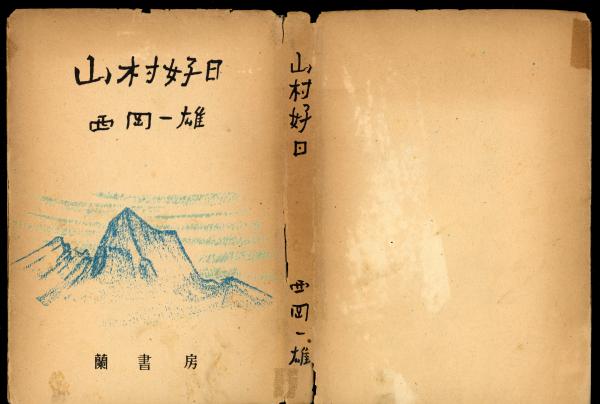 山村好日
西岡一雄
蘭書房
山村好日
西岡一雄